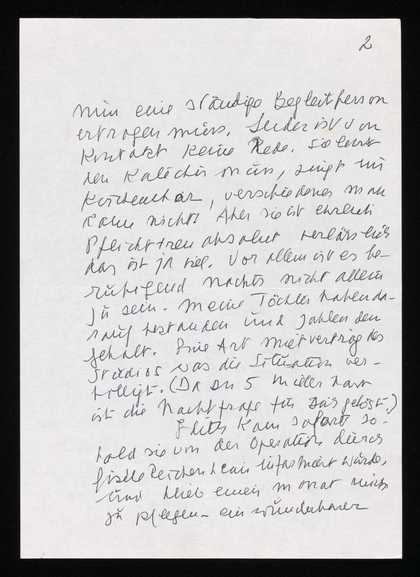 2
nun eine ständige Begleitperson
ertragen muss. Leider ist von
Kontakt keine Rede. Sie
den muss, singt im
Kirchenchor, verschiedenes man
kann nichts Aber sie ist ehrlich
Pflichttreu absolut verlässlich
das ist ja viel. Vor allem ist es be-
ruhigend nachts nicht allein
zu sein. Meine Töchter haben da-
rauf bestanden und zahlen den
Gehalt. Eine Art Mietvertrag des
Studios was die Situation ver-
billigt. (Da in 5
ist die Nachtfrage für gelöst.)
Edith kam sofort so-
bald sie von der Operation durch
Gisele informiert wurde,
und blieb einen Monat mich
zu pflegen - ein wunderbarer